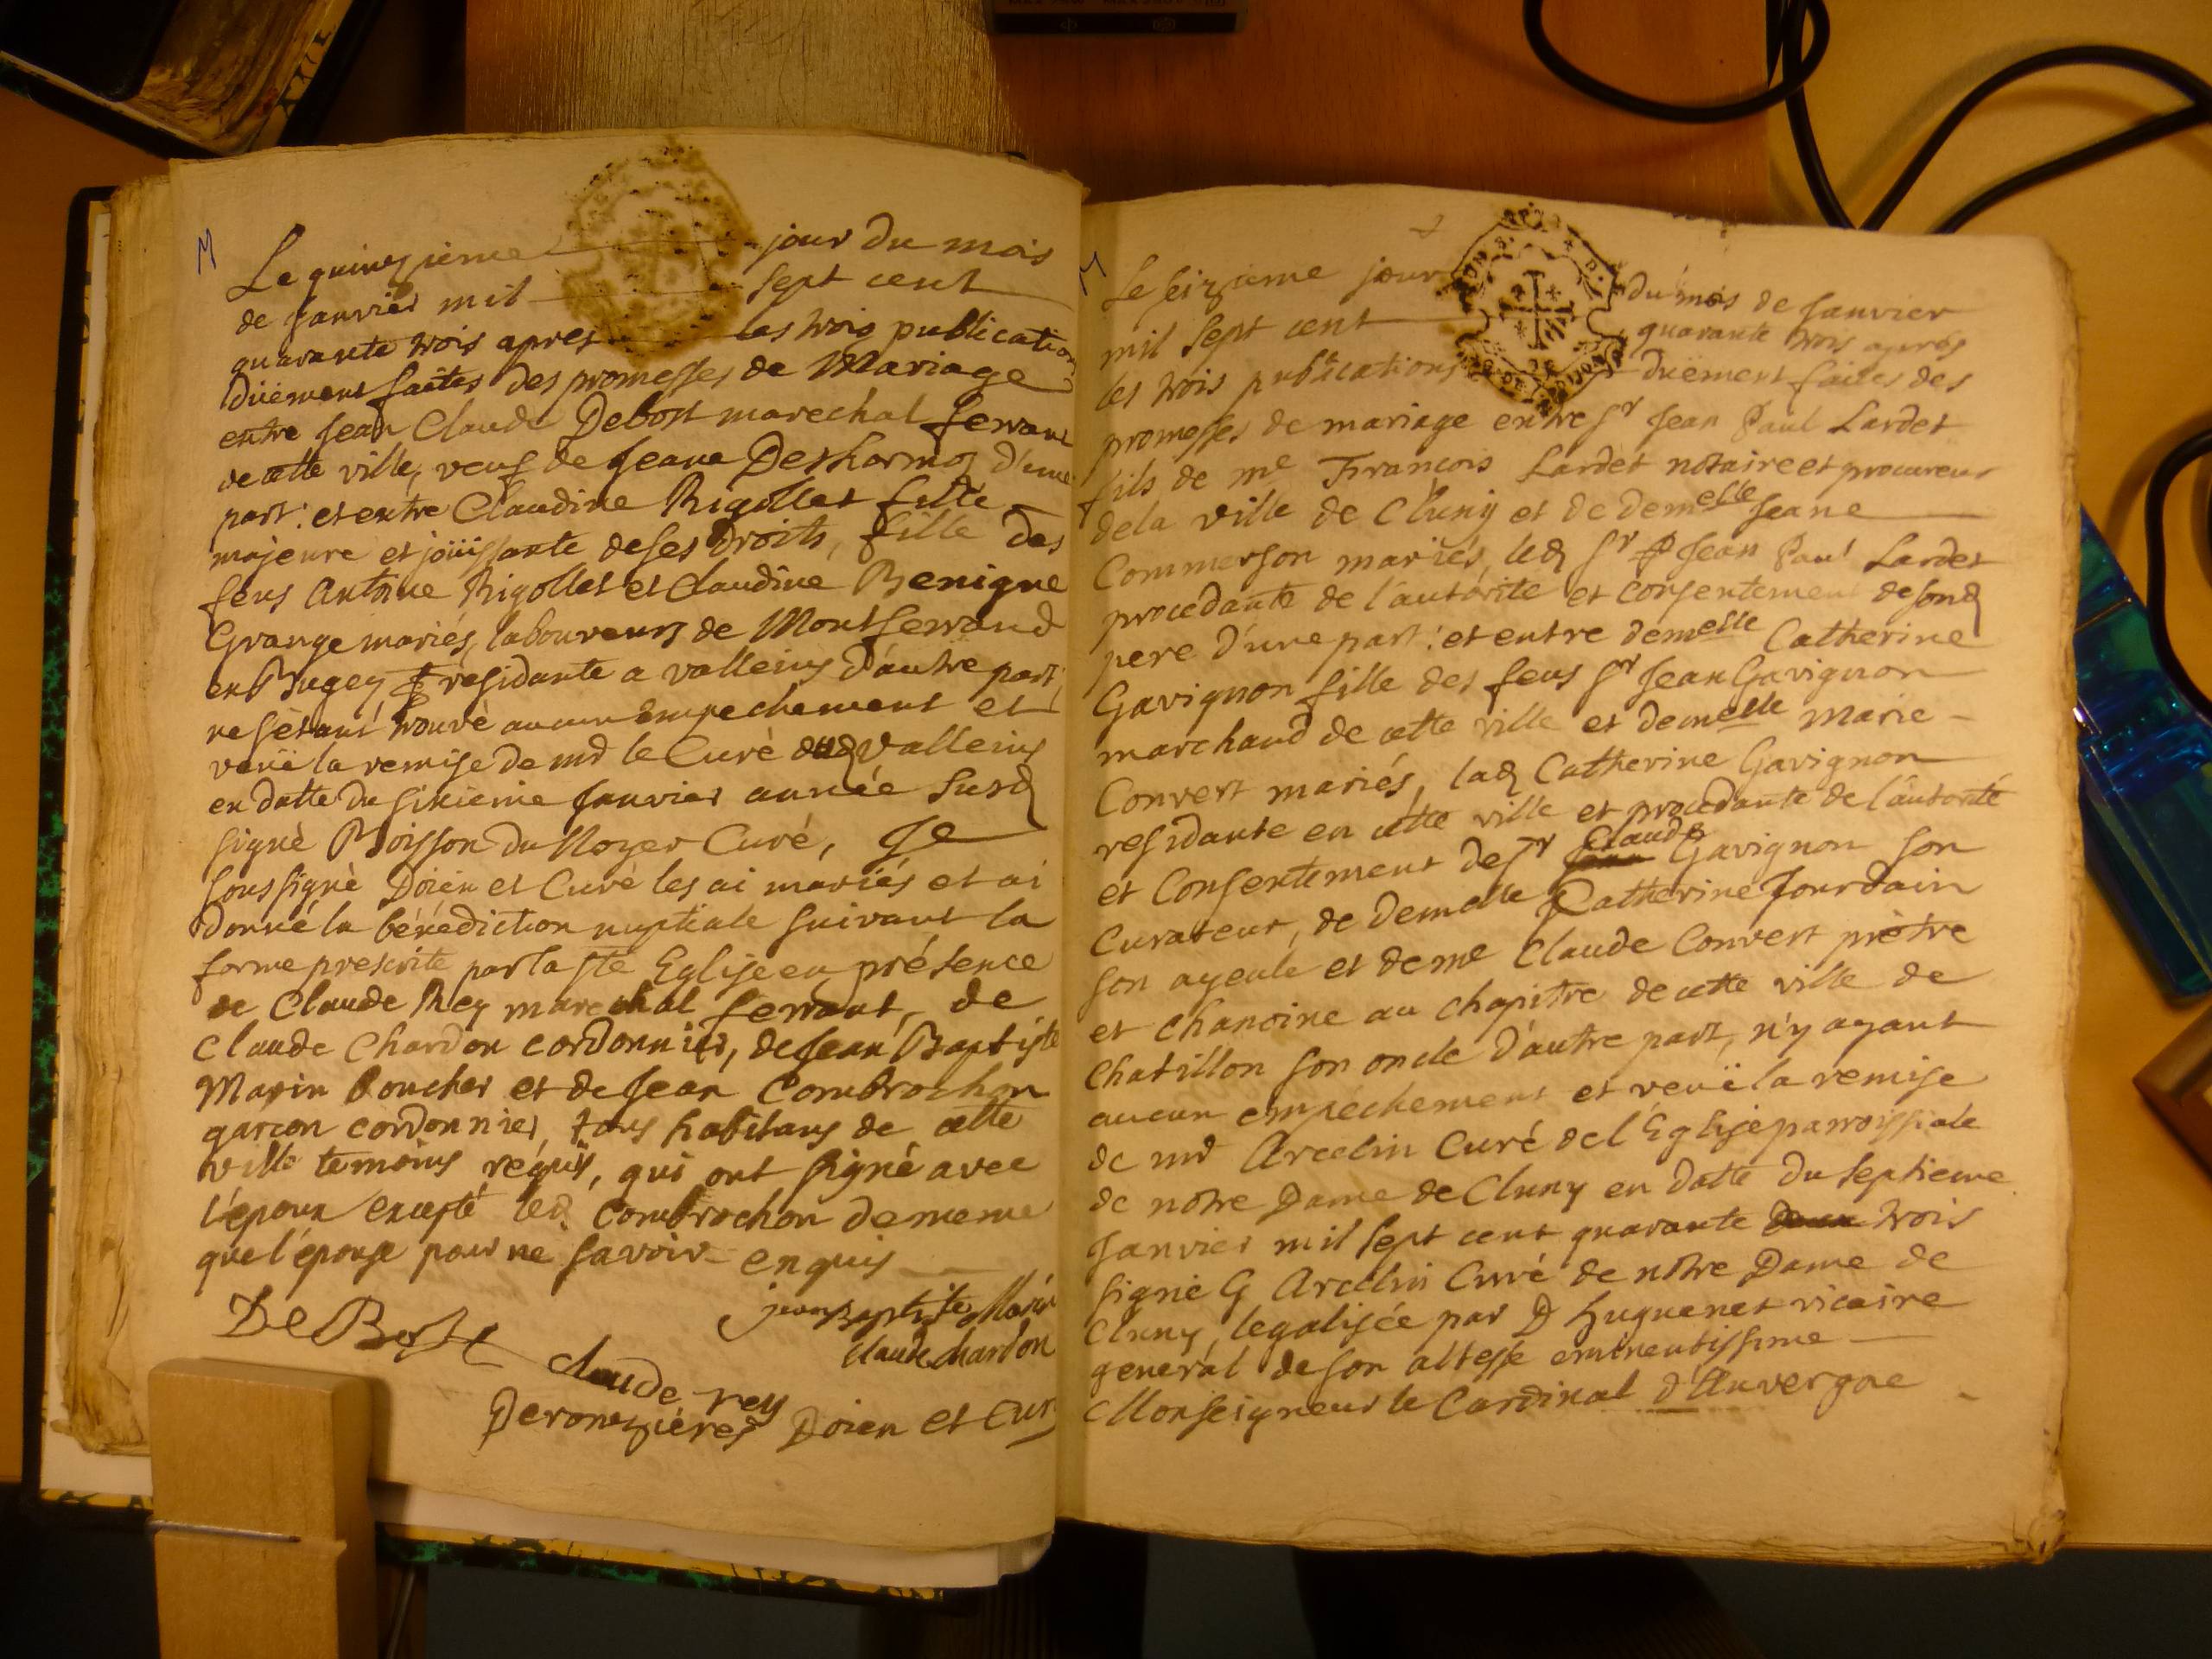 M
Le quinzieme jour du mois
de Janvier mil sept cent
quarante trois apres les trois publications
düement faites des promesses de Mariage
entre Jean Claude Debost marechal ferrant
de cette ville, veuf de Jeane Desharmoz d'une
part: et entre Claudine Rigollet fille
majeure et joüissante de ses droits, fille des
feus Antoine Rigollet et Claudine Benigne
Grange mariés, laboureurs de Montferrand
en Bugey residante a valleins d'autre part,
ne s'etant trouvé aucun empechement et
veüe la remise de mr le Curé dud valleins
en datte du sixieme Janvier année susd
signé Boisson du Noyer Curé, Je
soussigné Doien et Curé les ai mariés et ai
donné la bénédiction nuptiale suivant la
forme prescrite par la ste Eglise en présence
de Claude Rey marechal ferrant, de
Claude Chardon cordonnier, de Jean Baptiste
Marin boucher et de Jean Combrochon
garcon cordonnier, tous habitans de cette
ville temoins réquis, qui ont signé avec
l'époux excepté led. Combrochon de meme
que l'épouse pour ne savoir enquis
De Bost jean Baptiste Marin
claude chardon
claude rey
Deronzières Doien et Curé
Le seizieme jour du mois de Janvier
mil sept cent quarante trois après
les trois publications düement faites des
promesses de mariage entre Sr Jean Paul Lardet
fils de me François Lardet notaire et procureur
de la ville de Cluny et de demelle Jeane
Commerson mariés, led Sr Jean Paul Lardet
procedante de l'autorité et consentement de sond
pere d'une part: et entre demelle Catherine
Gavignon fille des feus Sr Jean Gavignon
marchand de cette ville et demelle Marie
Convert mariés, lad Catherine Gavignon
residante en cette ville et procedante de l'autorité
et Consentement de Sr Claude Gavignon son
Curateur, de demelle Catherine Jourdain
son ayeule et de me Claude Convert prètre
et chanoine au chapitre de cette ville de
Chatillon son oncle d'autre part, n'y ayant
aucun empéchement et veuë la remise
de mr Arcelin Curé de l'Eglise parroissiale
de notre Dame de Cluny en datte du septieme
Janvier mil sept cent quarante trois
signé G Arcelin Curé de notre Dame de
Cluny, legalisée par D Huguenet vicaire
general de son altesse eminentissime
Monseigneur le Cardinal d'Auvergne